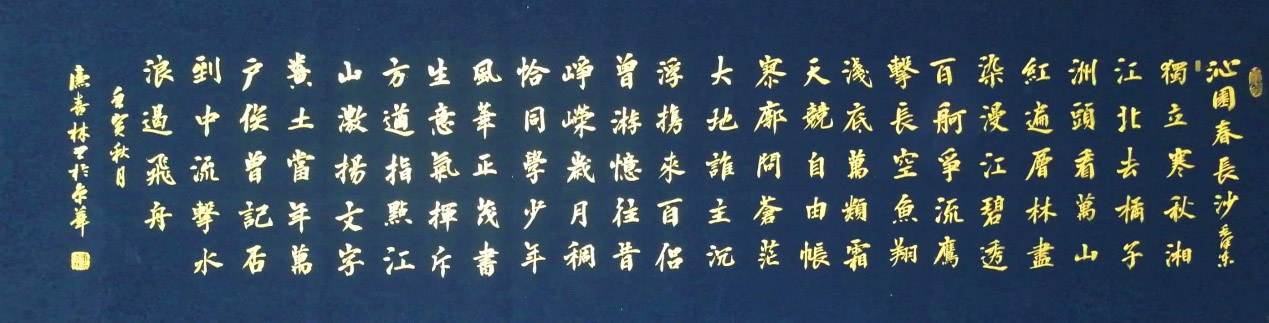 沁園春長沙 毛澤東
獨立寒秋湘
江北去橘子
洲頭看萬山
紅遍層林盡
染漫江碧透
百舸爭流鷹
擊長空魚翔
淺底萬類霜
天競自由帳
寥廓問蒼茫
大地誰主沉
浮携來百侶
曾游憶往昔
崢嶸歲月稠
恰同學少年
風華正茂書
生意氣揮斥
方遒指點江
山激揚文字
糞土當年萬
戶侯曾記否
到中流擊水
浪遏飛舟
壬寅秋月
壽林書於京華